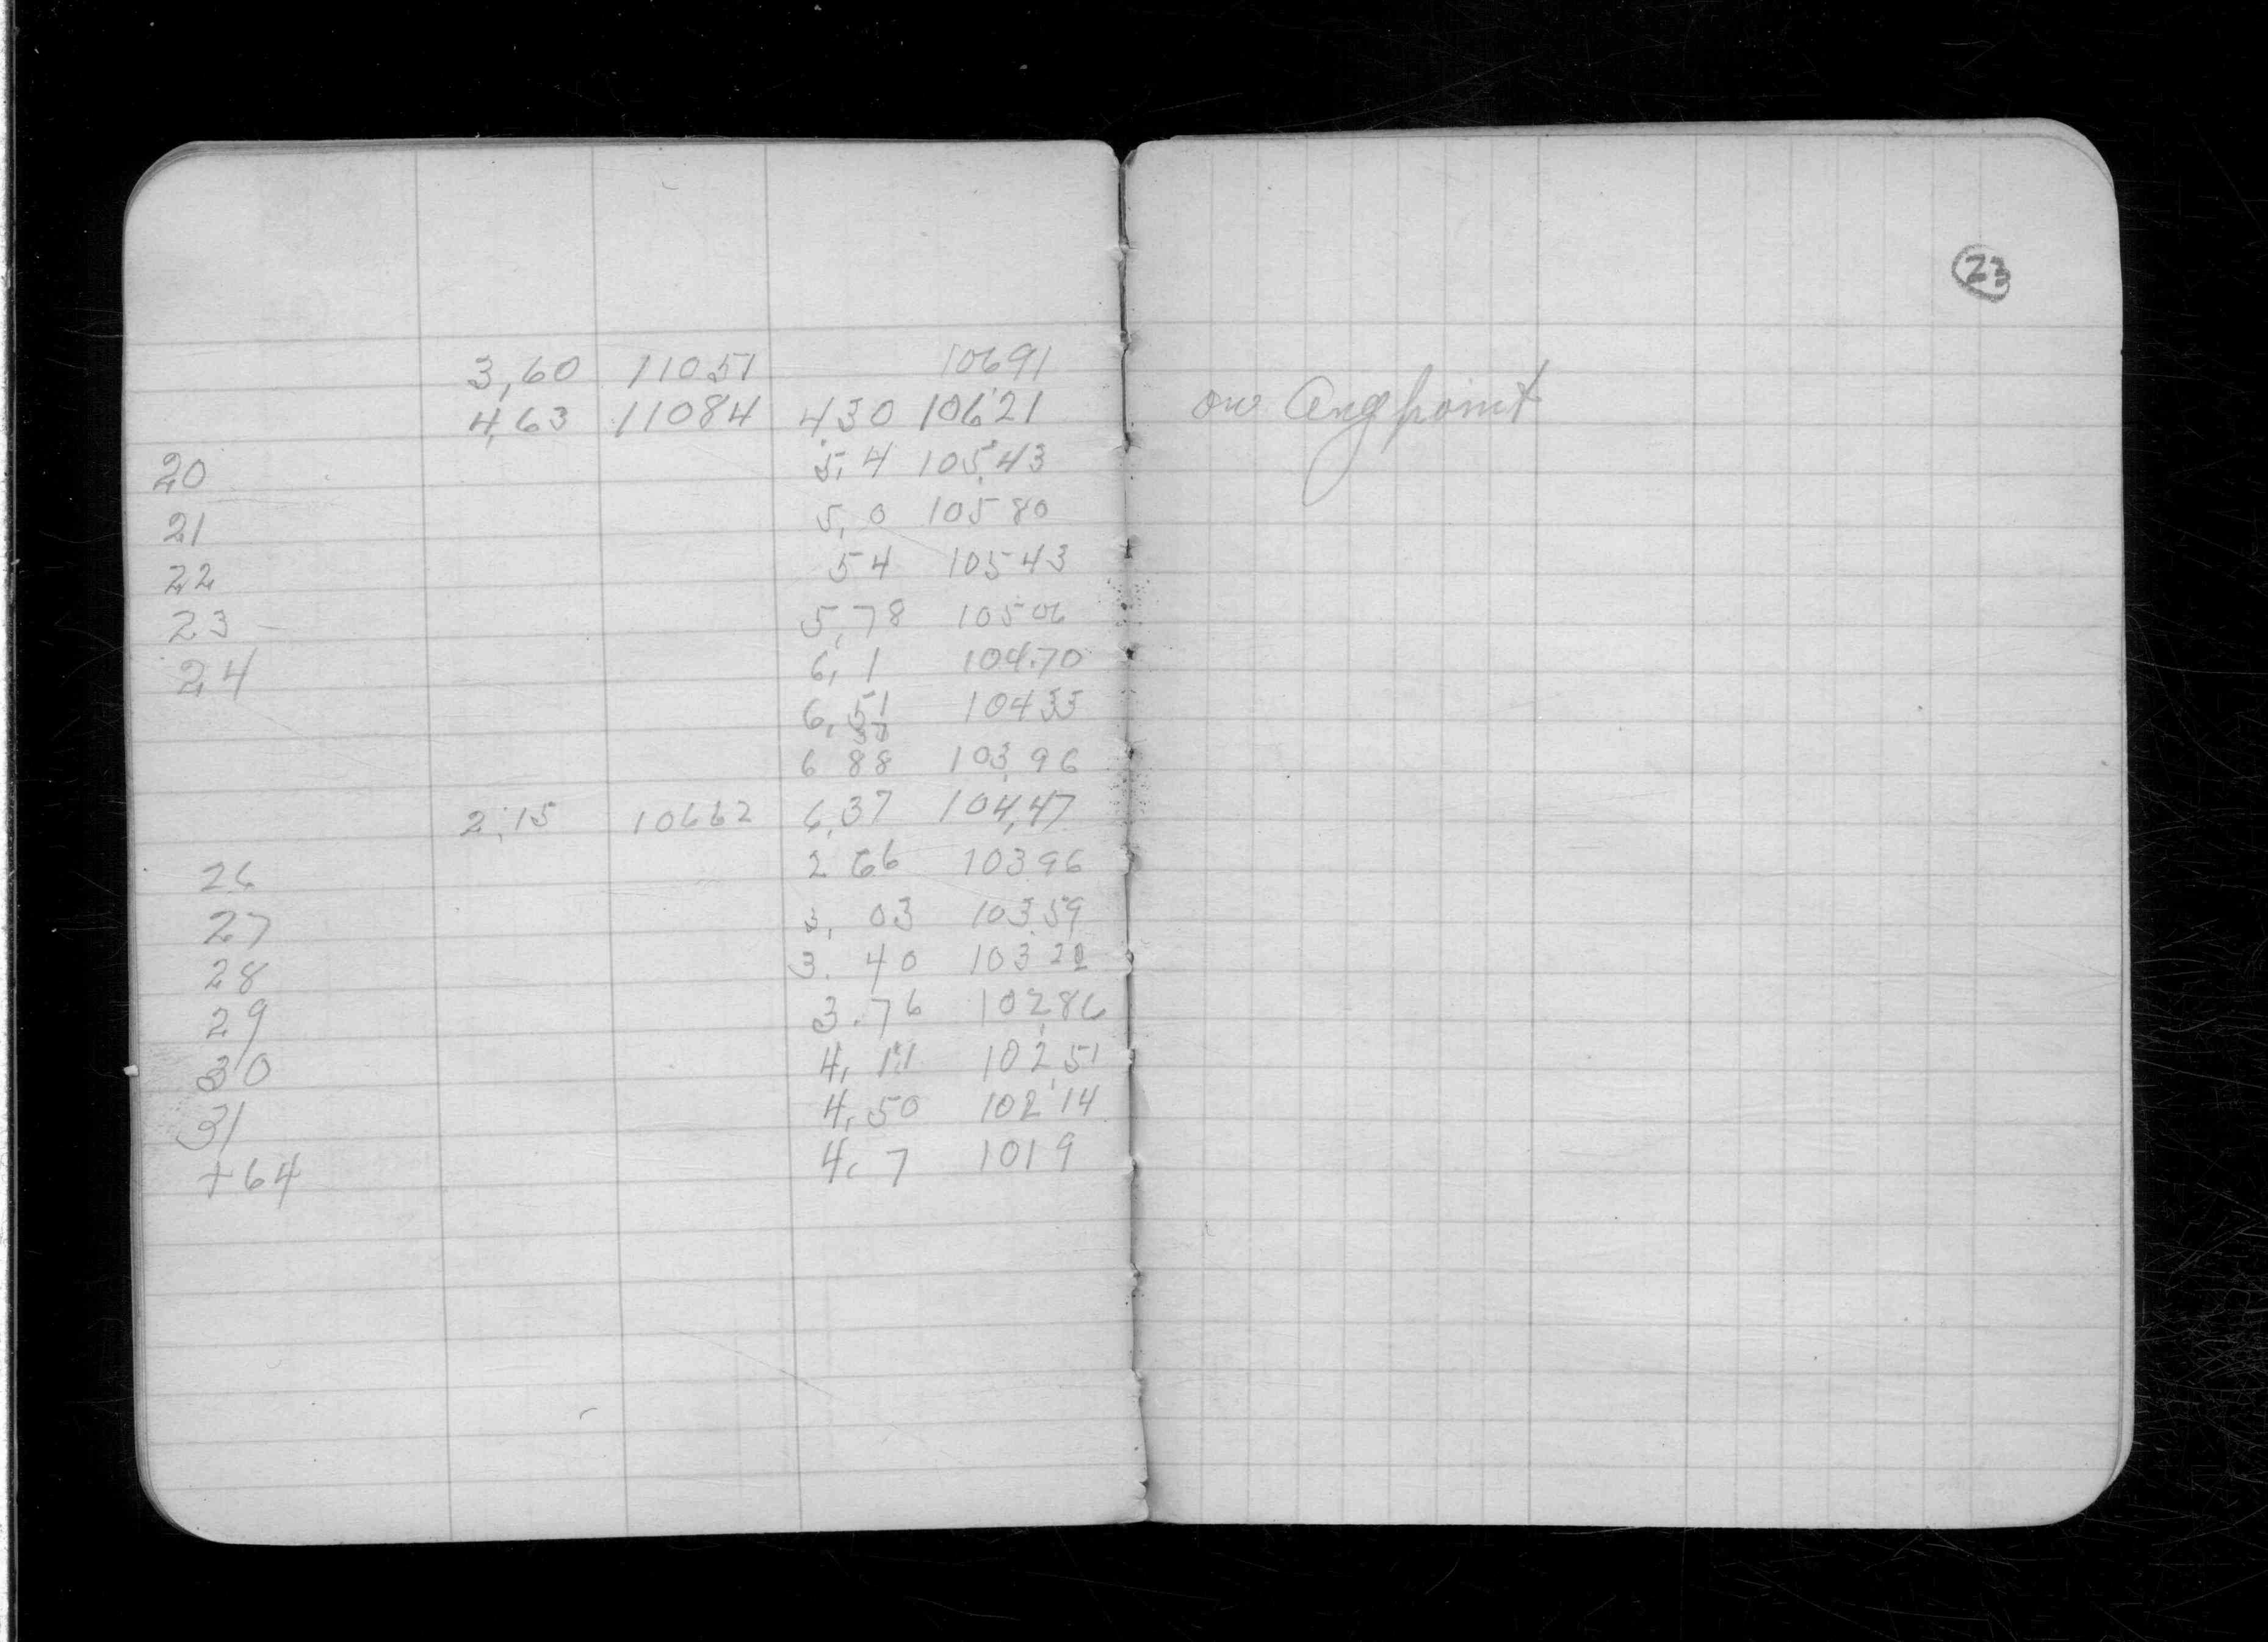 23
3,60 11051 10691
4,63 11084 4,30 106.21 on Angpoint
20 5,4 105.43
21 5,0 105 80
22 54 105 43
23 5,78 105 06
24 6,1 104.70
6,51 104 33
37
6 88 103,96
2,15 10662 6,37 104,47
26 2 66 103 96
27 3,03 103.59
28 3.40 103 22
29 3.76 102,86
30 4,11 102,51
31 4,50 102'14
+64 4,7 1019